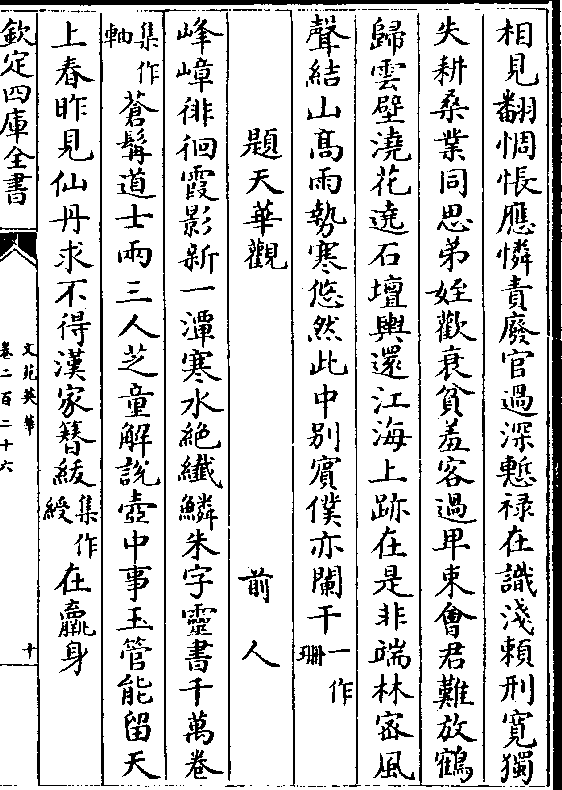 相見翻惆悵應憐責廢官過深慙禄在識淺頼刑寛獨
失耕桑業同思弟姪歡衰貧羞客過早束㑹君難放鶴
歸雲壁澆花遶石壇輿還江海上跡在是非端林宻風
聲結山髙雨勢寒悠然此中别賓僕亦闌干一作珊
題天華觀　前人
峰嶂徘徊霞影新一潭寒水絶纎鱗朱字靈書千萬卷
集作軸蒼髯道士兩三人芝童解説壺中事玉管能留天
上春昨見仙丹求不得漢家簪紱集作綬在羸身
欽定四庫全書
文苑英華
卷二百二十六
十